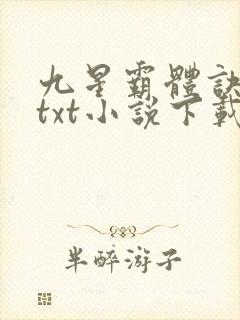 九星霸體訣
txt小說下載
半醉游子